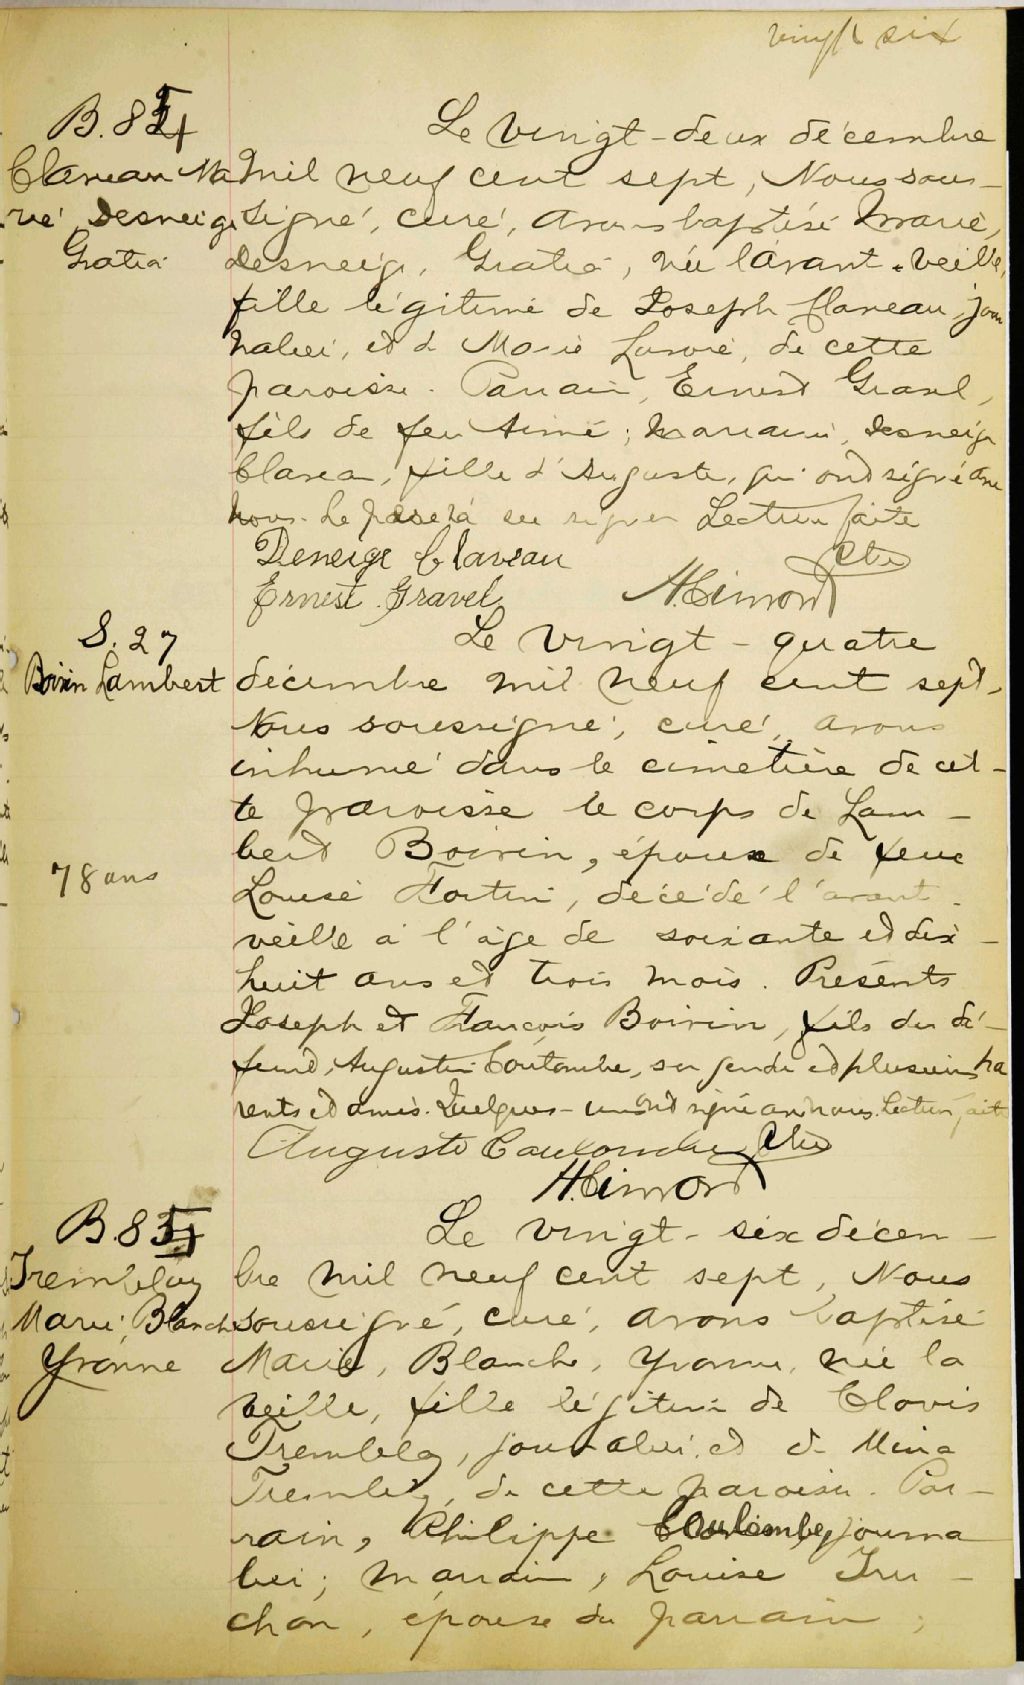 vingt six
B. 84
Claveau Ma
rie Desneige
Gratia
Le vingt-deux décembre
mil neuf cent sept, Nous sous-
signé, curé, avons baptisé Marie,
Desneige, Gratia, née l'avant-veille,
fille légitime de Joseph Claveau, jour
nalier, et de Marie de cette
paroisse. Parrain, Ernest Gravel,
fils de feu Aimé; marraine, Desneige
Clavea, fille d'Auguste, qui ont signé avec
nous. Le père n'a su signer Lecture faite
Deneige Claveau
Ernest Gravel
H. Cimon Ptre
S. 27
Boivin Lambert
78 ans
Le vingt-quatre
décembre mil neuf cent sept,
Nous soussigné, curé, avons
inhumé dans le cimetière de cet-
te paroisse le corps de Lam-
bert Boivin, époux de feue
Louise Fortin, décédé l'avant-
veille à l'âge de soixante et dix-
huit ans et trois mois. Présents
Joseph et François Boivin, fils du dé-
funt, Augustin Coulombe, son gendre et plusieurs pa
rents et amis. Quelques-uns ont signé avec nous. Lecture faite
Auguste Coulombe
H. Cimon Ptre
B. 85
Tremblay
Marie, Blanche
Yvonne
Le vingt-six décem-
bre mil neuf cent sept, Nous
soussigné, curé, avons baptisé
Marie, Blanche, Yvonne, née la
veille, fille légitime de Clovis
Tremblay, journalier, et de Mina
Tremblay, de cette paroisse. Par-
rain, Philippe Coulombe, journa
lier; marraine, Louise Tru-
chon, épouse du parrain;